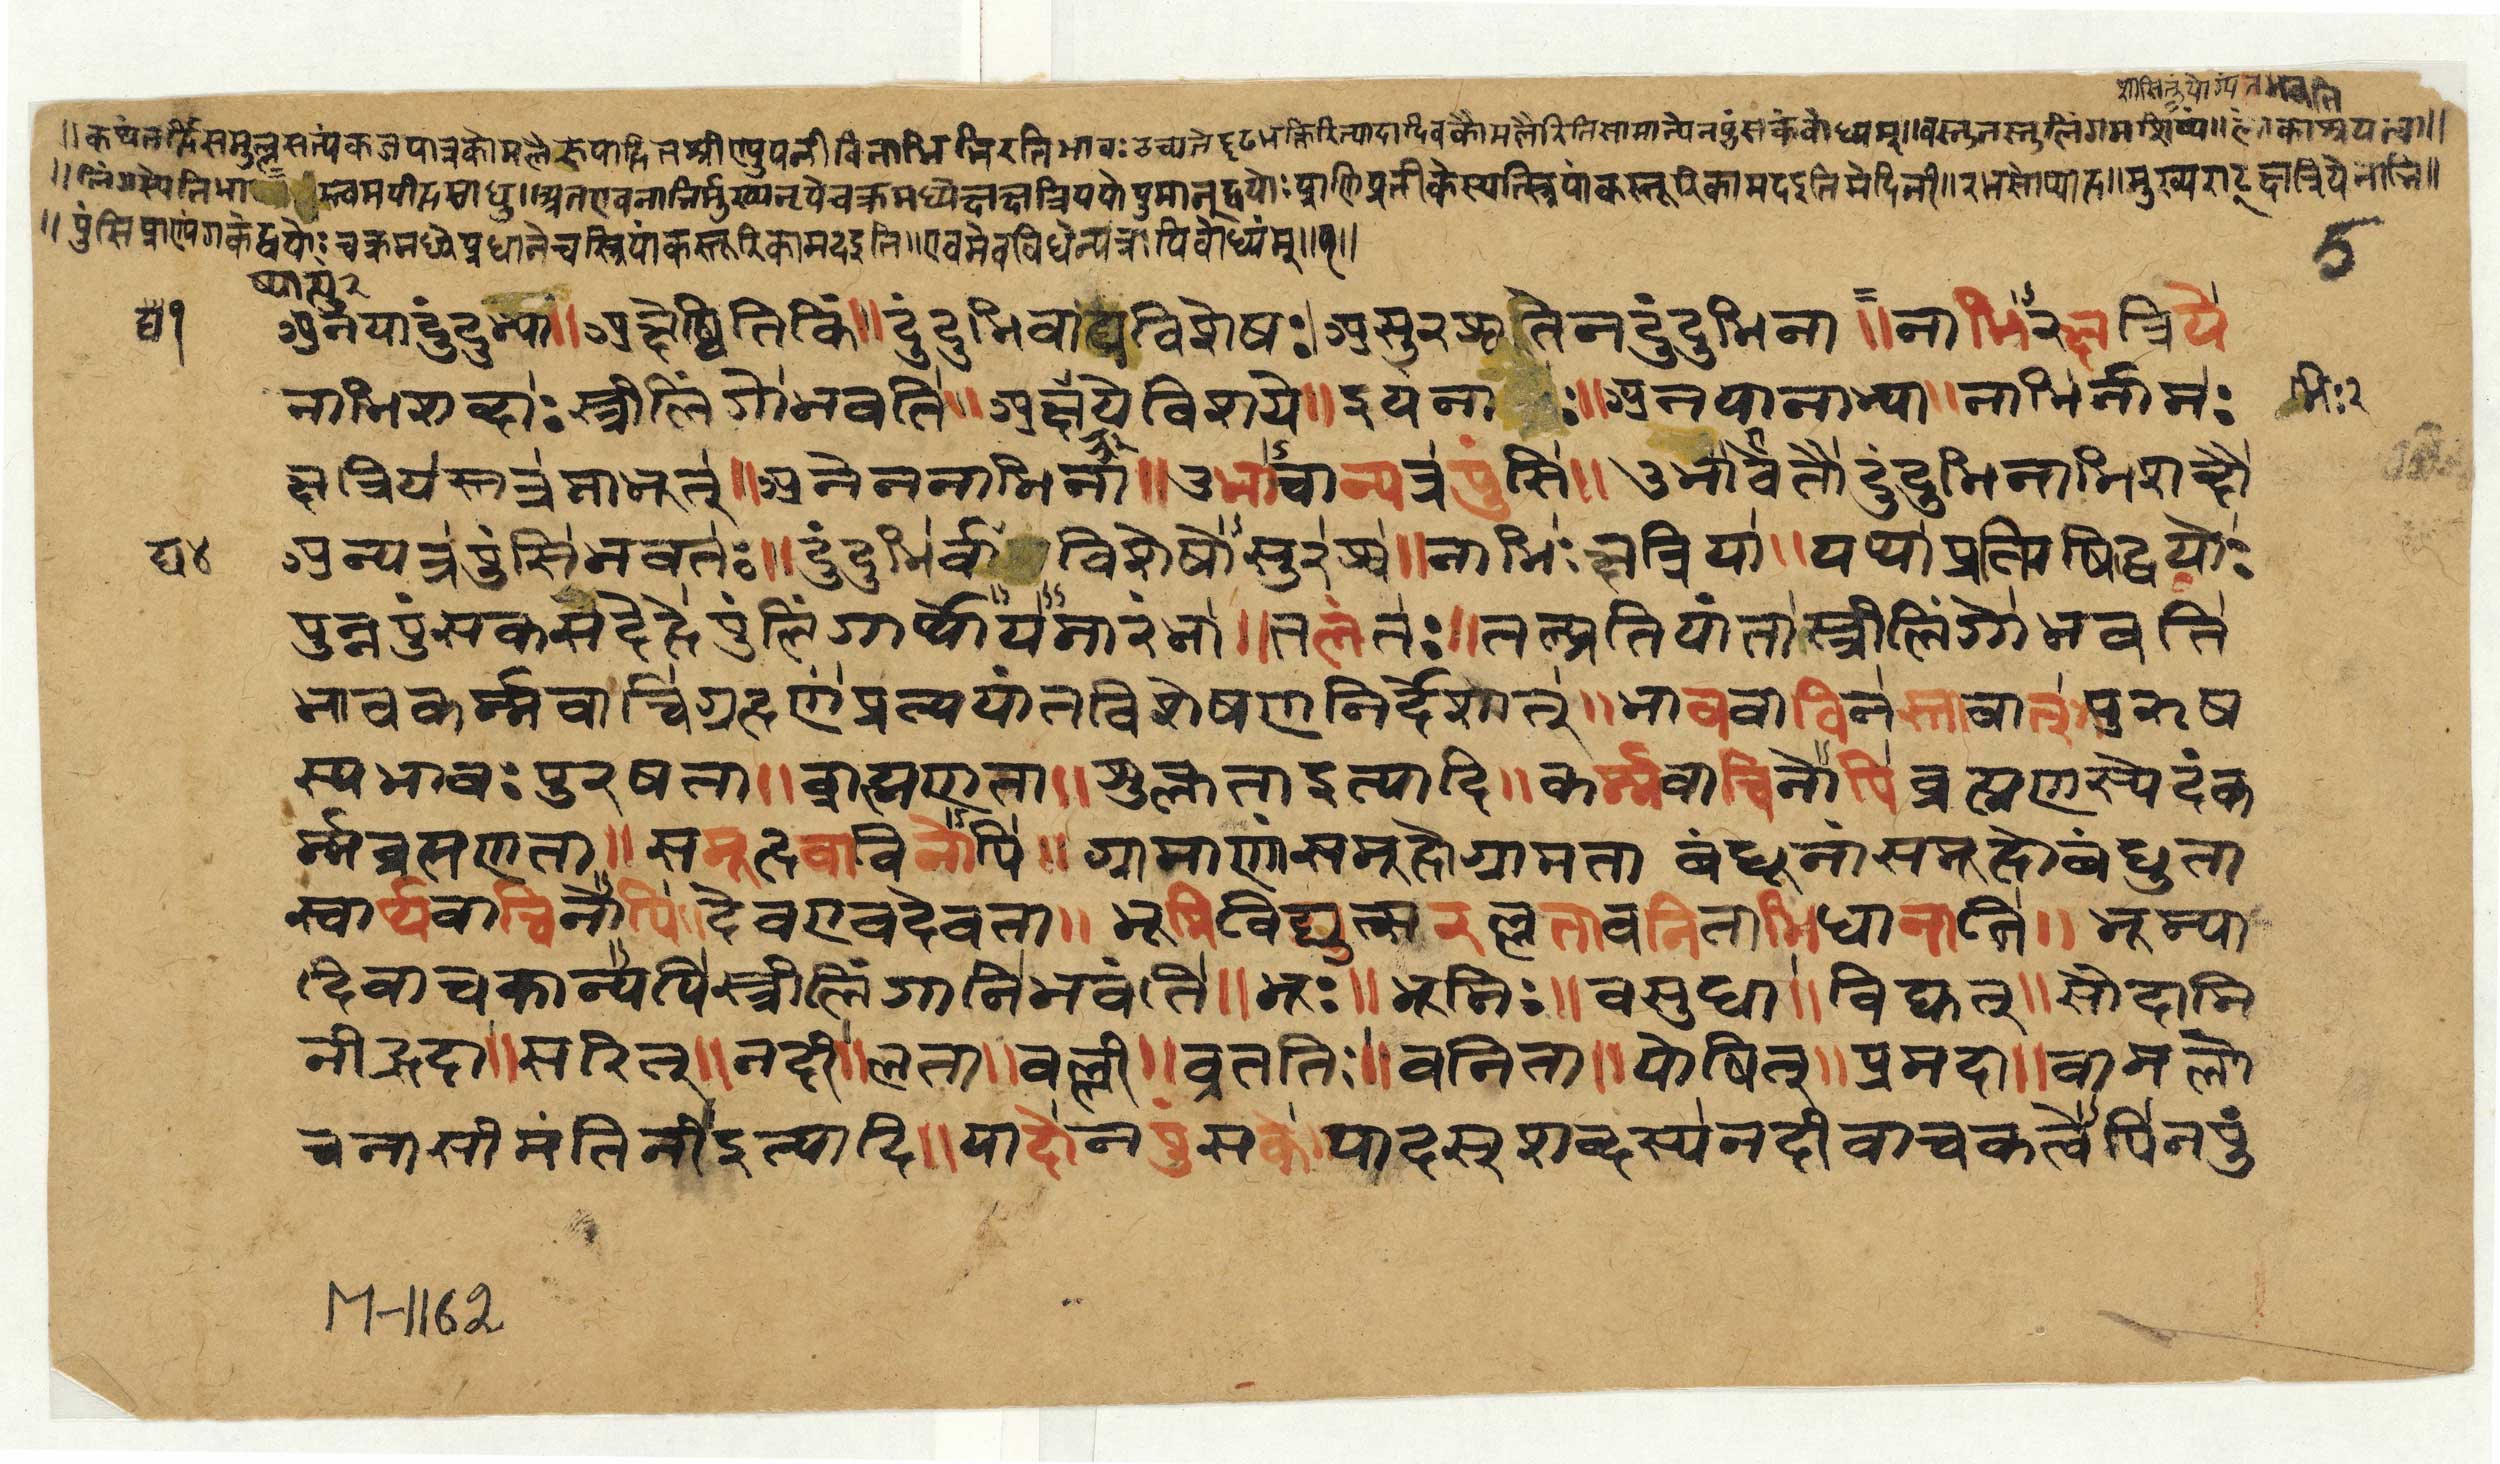 शासितुं योग्यं न भवति
॥ कथं तर्हि समुल्लसत्पंकजपत्रकोमलैरुपाहितश्रीण्युपनीविनाभिभिरिति भावः उच्यते दृढभक्तिरित्यादाविव कोमलैरिति सामान्ये नपुंसकं बोध्यम् ॥ वस्तुतस्तु लिंगमशिष्यं ॥ लोकाश्रयत्वा ॥
॥ लिंगस्येति भा त्वमपीह साधु ॥ अत एव नाभिर्मुख्यनृपे चक्रमध्यक्षत्रिययो पुमान् द्वयोः प्राणिप्रतीके स्यात्स्त्रियां कस्तूरिकामद इति मेदिनी ॥ रभसोप्याह ॥ मुख्यराट् क्षत्रिये नाभि ॥
॥ पुंसि प्राण्यंगके द्वयोः चक्रमध्ये प्रधाने च स्त्रियां कस्तूरिकामद इति ॥ एवमेवंविधेन्यत्रापि बोध्यंम् ॥१॥
5
ष्यासुर
द्य१ अनया दुंदुभ्या ॥ अक्षेष्विति किं ॥ दुंदुभिवाद्यविशेषः । असुरश्च तेन दुंदुभिना ॥ नाभिरक्षत्रिये
नाभिशब्दाः स्त्रीलिंगो भवति ॥ अक्षत्रिये विशये ॥ इयं नाभिः ॥ अनया नाभ्या ॥ नाभिर्नामः भिः२
क्षत्रियस्तत्र माभूत् ॥ अनेन नाभिना ॥ उभावान्यत्र पुंसि ॥ उभावेतौ दुंदुभिनाभिशब्दौ
द्य४ अन्यत्र पुंसि भवतः ॥ दुंदुभिर्वा विशेषोसुरश्च ॥ नाभिः क्षत्रिया ॥ यथा प्रतिपिषिद्वयोः
पुन्नपुंसकसंदेहे पुंलिंगार्थोयमारंभो ॥ तलंतः ॥ तत्प्रतियांता स्त्रीलिंगो भवति
भावकर्म्मवाचि ग्रहणं प्रत्ययांतविशेषणनिर्देशात् ॥ भाववाचिनस्तावात् पुरुष
स्य भावः पुरषता ॥ ब्राह्मणता ॥ शुक्लता इत्यादि ॥ कर्म्मवाचिनोपि ब्रह्मणस्येदं क
र्म्म ब्रह्मणता ॥ समूहवाचिनोपि ॥ ग्रामाणां समूहो ग्रामता बंधूनां समूहो बंधुता
स्वार्थवाचिनोपि ॥ देव एव देवता ॥ भूमिविद्युत्सरल्लतावनिताभिधानानि ॥ भूम्या
दिवाचकान्यपि स्त्रीलिंगानि भवंति ॥ भूः ॥ भूमिः ॥ वसुधा ॥ विद्युत् ॥ सोदामि
नी ह्रदा ॥ सरित् ॥ नदी ॥ लता ॥ वल्ली ॥ व्रततिः ॥ वनिता ॥ योषित् ॥ प्रमदा ॥ वामलो
चना सीमंतिनी इत्यादि ॥ यादो नपुंसकं ॥ यादस् शब्दस्य नदीवाचकत्वेपि नपुं
M-1162